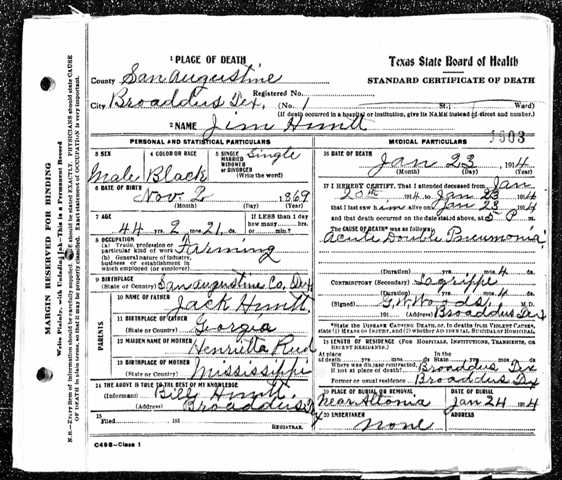 1 PLACE OF DEATH
Texas State Board of Health
STANDARD CERTIFICATE OF DEATH
County San Augustine
Registered No.
City Broaddus Tex, (No. 1 St.; Ward)
(If death occurred in a hospital or institution, give its NAME instead of street and number.)
2 NAME Jim Hunt
1903
PERSONAL AND STATISTICAL PARTICULARS
3 SEX Male
4 COLOR OR RACE Black
5 SINGLE MARRIED WIDOWED or DIVORCED (Write the word) Single
6 DATE OF BIRTH
Nov 2 1869
(Month) (Day) (Year)
7 AGE
44 yrs. 2 mos. 21 ds.
If LESS than 1 day how many hrs. or min.?
8 OCCUPATION
(a) Trade, profession or particular kind of work Farming
(b) General nature of industry, business or establishment in which employed (or employer)
9 BIRTHPLACE
(State or Country) San Augustine Co, Tex
PARENTS
10 NAME OF FATHER Jack Hunt
11 BIRTHPLACE OF FATHER
(State or Country) Georgia
12 MAIDEN NAME OF MOTHER Henrietta
13 BIRTHPLACE OF MOTHER
(State or Country) Mississippi
14 THE ABOVE IS TRUE TO THE BEST OF MY KNOWLEDGE
(Informant) Bill Hunt
(Address) Broaddus Tx
15
Filed 191
REGISTRAR.
C498-Class 1
MEDICAL PARTICULARS
16 DATE OF DEATH
Jan 23, 1914
(Month) (Day) (Year)
17 I HEREBY CERTIFY, That I attended deceased from Jan
20th 1914, to Jan 23 1914
that I last saw him alive on Jan 23 1914
and that death occurred on the date stated above, at 5 P m.
The CAUSE OF DEATH* was as follows:
Acute Double Pneumonia
(Duration) yrs. mos. 4 ds.
CONTRIBUTORY (Secondary) Lagrippe
(Duration) yrs. mos. 4 ds.
(Signed) G. W. Woods, M. D.
191 (Address) Broaddus Tx
*State the DISEASE CAUSING DEATH, or, in deaths from VIOLENT CAUSES, state (1) MEANS OF INJURY, and (2) whether ACCIDENTAL, SUICIDAL or HOMICIDAL.
18 LENGTH OF RESIDENCE (FOR HOSPITALS, INSTITUTIONS, TRANSIENTS, OR RECENT RESIDENTS.)
At place of death yrs. mos. ds. In the State yrs. mos. ds.
Where was disease contracted, if not at place of death? Broaddus Tex
Former or usual residence Broaddus Tex
19 PLACE OF BURIAL OR REMOVAL
Near Altonia
DATE OF BURIAL
Jan 24 1914
20 UNDERTAKER
None
ADDRESS
MARGIN RESERVED FOR BINDING
Write Plainly, with Unfading Ink—This is a Permanent Record